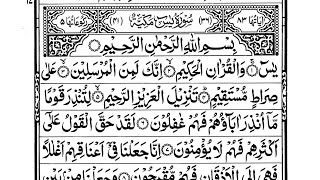 ١٢
اٰيَاتُهَا ٨٣ (٣٦) سُوْرَةُ يٰسٓ مَكِّيَّةٌ (٤١) رُكُوْعَاتُهَا ٥
بِسْمِ اللّٰهِ الرَّحْمٰنِ الرَّحِيْمِ
يٰسٓ ۚ وَالْقُرْاٰنِ الْحَكِيْمِ ۙ اِنَّكَ لَمِنَ الْمُرْسَلِيْنَ ۙ عَلٰى
صِرَاطٍ مُّسْتَقِيْمٍ ؕ تَنْزِيْلَ الْعَزِيْزِ الرَّحِيْمِ ۙ لِتُنْذِرَ قَوْمًا
مَّاۤ اُنْذِرَ اٰبَآؤُهُمْ فَهُمْ غٰفِلُوْنَ ۞ لَقَدْ حَقَّ الْقَوْلُ عَلٰۤى
اَكْثَرِهِمْ فَهُمْ لَا يُؤْمِنُوْنَ ۞ اِنَّا جَعَلْنَا فِيْۤ اَعْنَاقِهِمْ اَغْلٰلًا
فَهِيَ اِلَى الْاَذْقَانِ فَهُمْ مُّقْمَحُوْنَ ۞ وَجَعَلْنَا مِنْۢ بَيْنِ